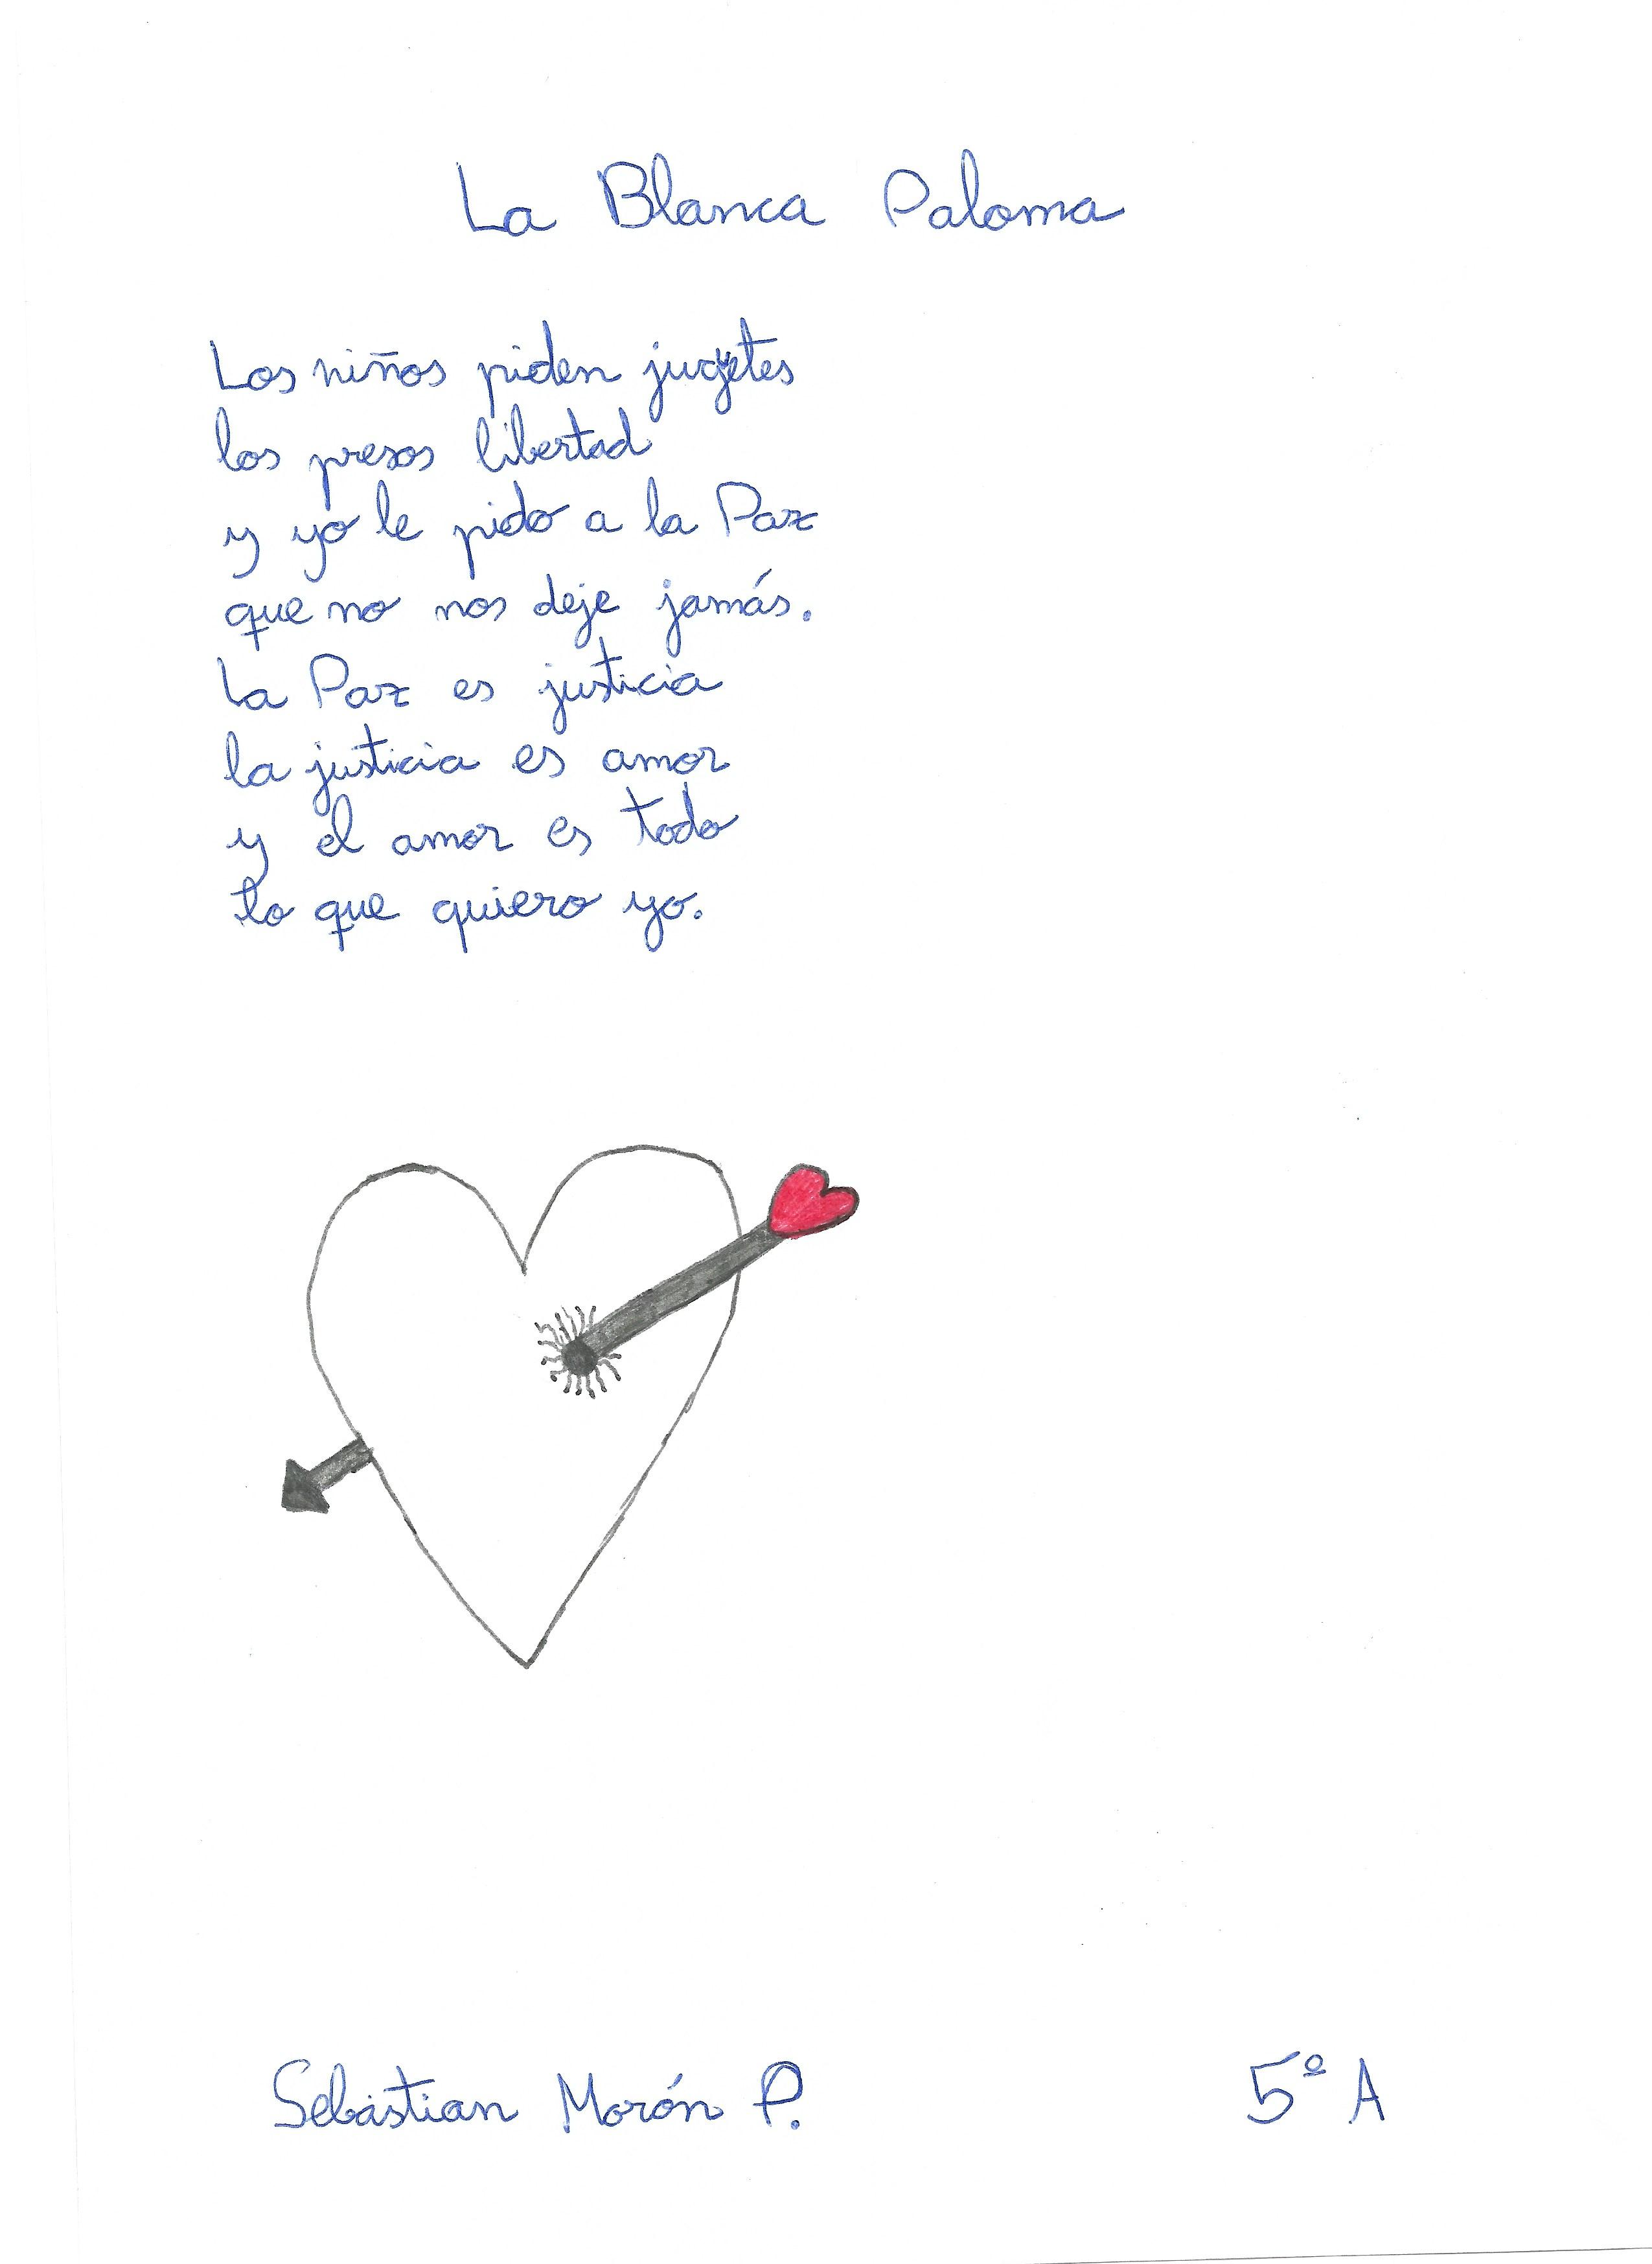 La Blanca Paloma
Los niños piden jugetes
los presos libertad
y yo le pido a la Paz
que no nos deje jamás.
La Paz es justicia
la justicia es amor
y el amor es todo
lo que quiero yo.
Sebastian Morón P. 5º A